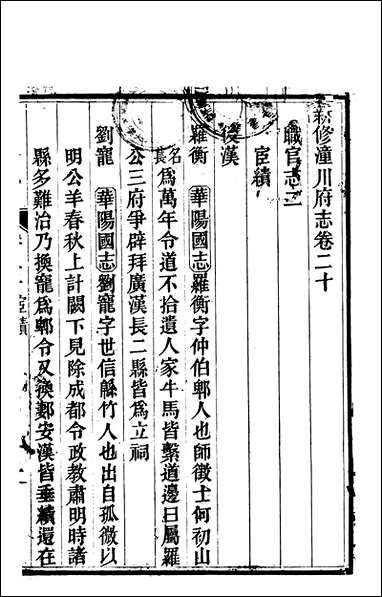 新修潼川府志卷二十
職官志二
宦績
後漢
羅衡 華陽國志羅衡字仲伯郫人也師徵士何初山
名為萬年令道不拾遺人家牛馬皆繫道邊曰屬羅
公三府爭辟拜廣漢長二縣皆為立祠
劉寵 華陽國志劉寵字世信緜竹人也出自孤微以
明公羊春秋上計闕下見除成都令政教肅明時諸
縣多難治乃換寵為郫令又換郪安漢皆垂績還在